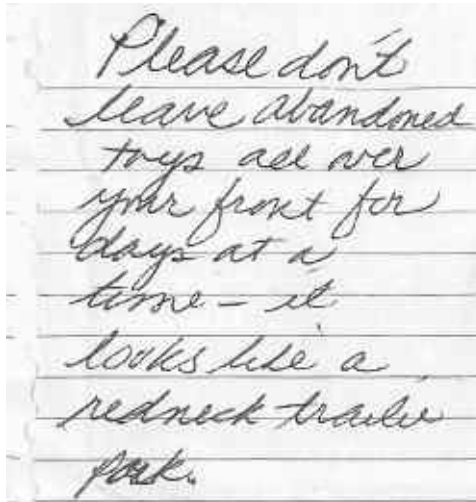 Please don't
leave abandoned
toys all over
your front for
days at a
time - it
looks like a
redneck trailer
park.